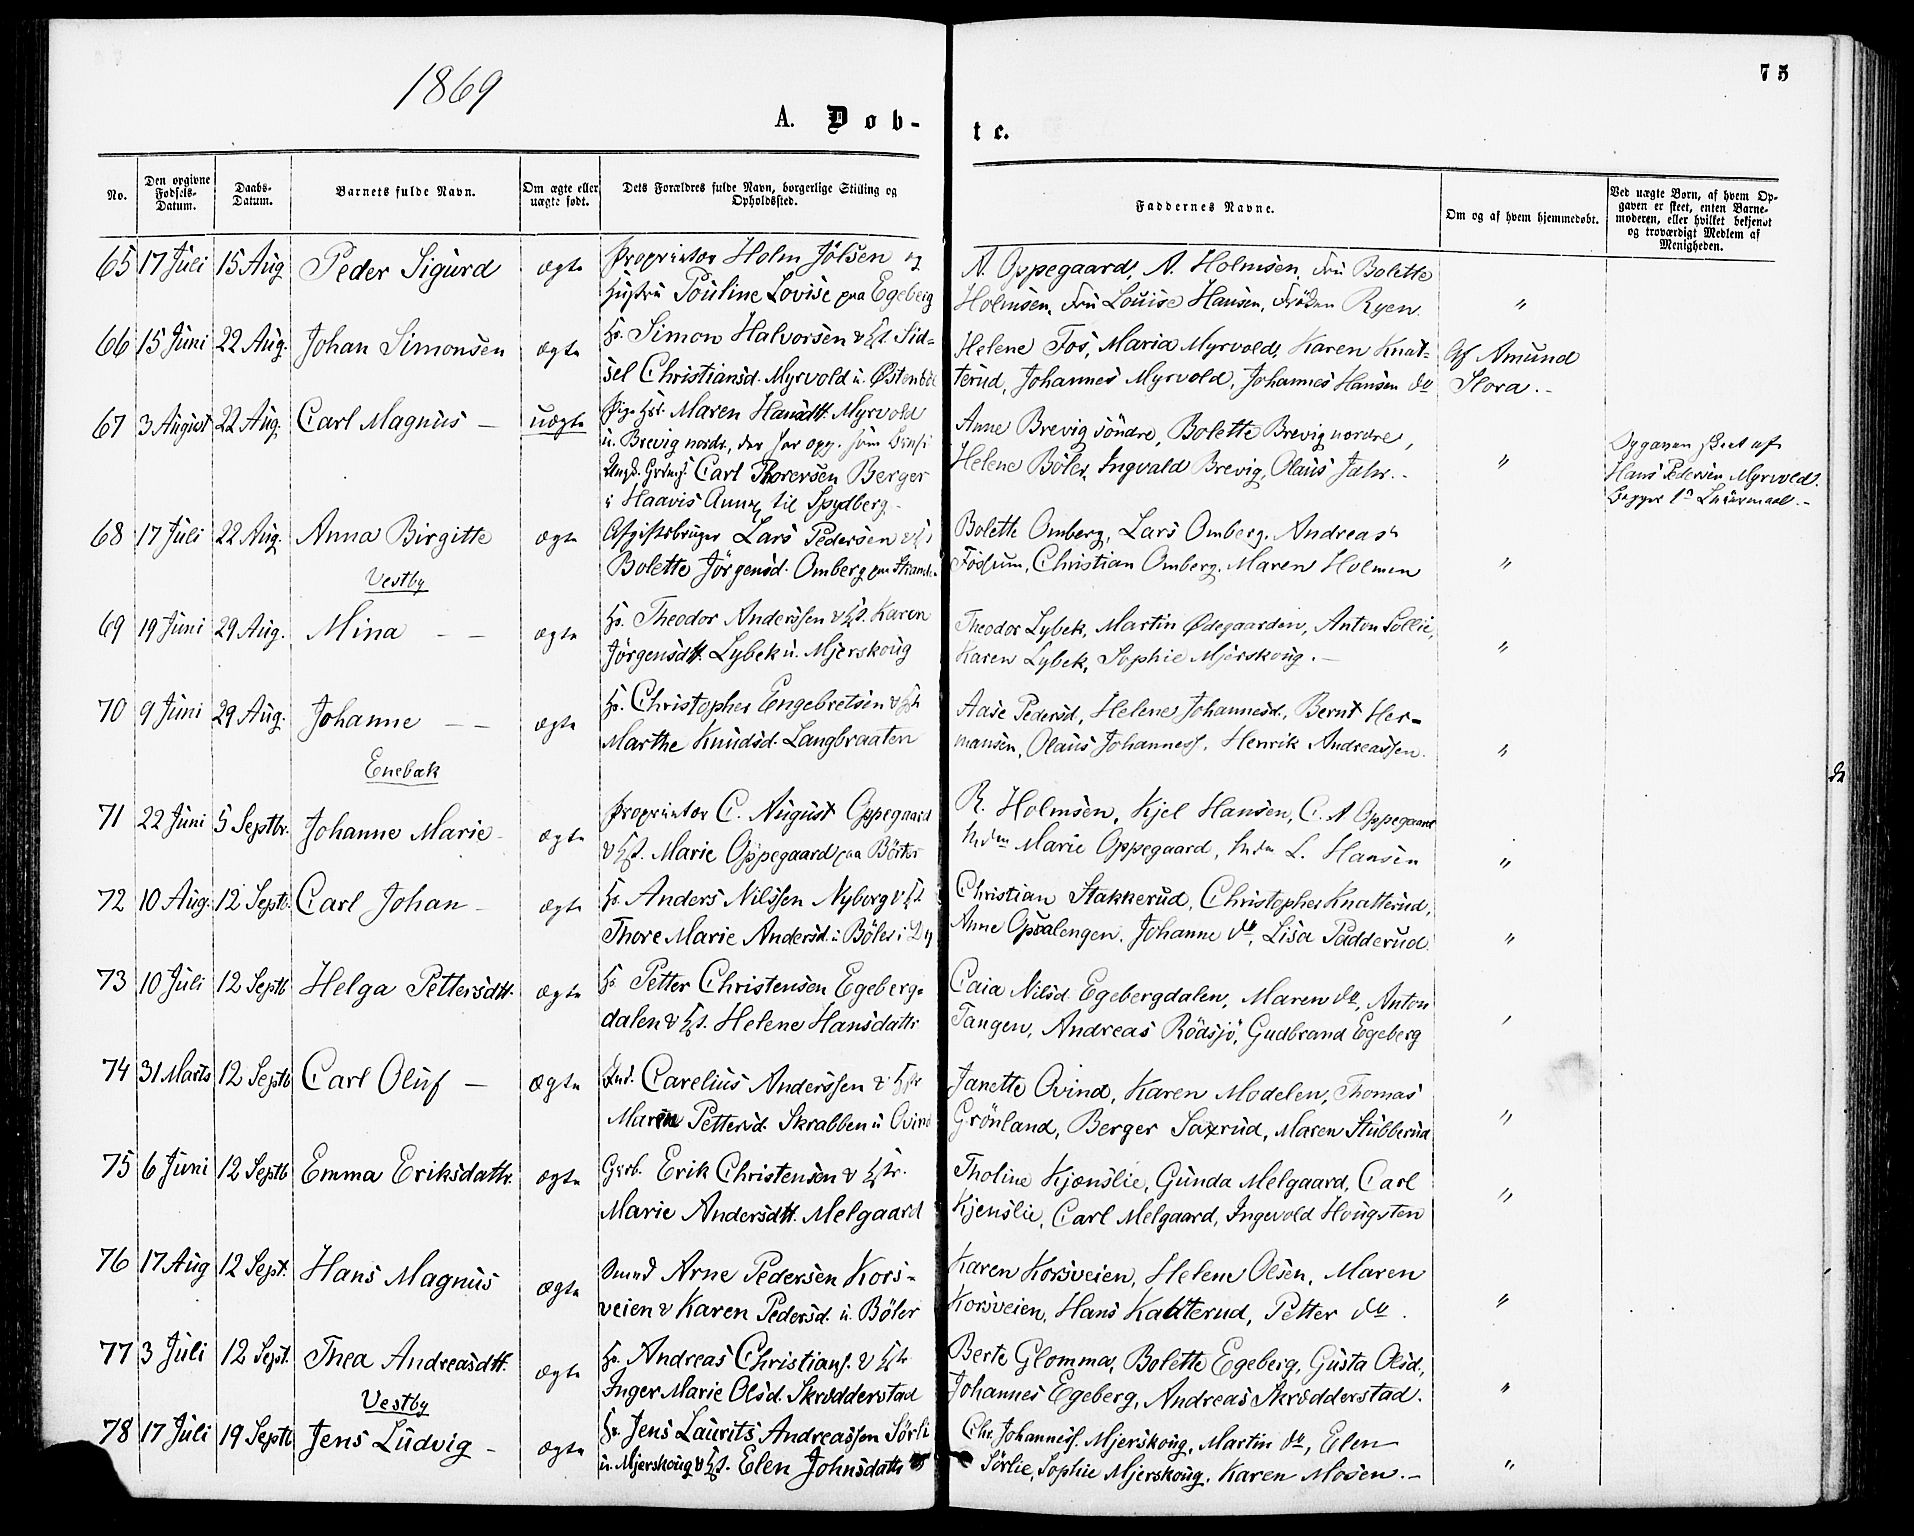 1869
75
A. Døb-
te.
No.
Den opgivne Fødsels-Datum.
Daabs-Datum.
Barnets fulde Navn.
Om ægte eller uægte født.
Dets Forældres fulde Navn, borgerlige Stilling og Opholdssted.
Faddernes Navne.
Om og af hvem hjemmedøbt.
Ved uægte Børn, af hvem Opgaven er skeet, enten Barnemoderen, eller hvilket bekjendt og troværdigt Medlem af Menigheden.
65 17 Juli 15 Aug Peder Sigurd ægte Proprietær Holm Jölsen og
Hustru Pouline Lovise paa Egeberg
A. Oppegaard, A. Holmsen, Fru Bolette
Holmsen, Fru Louise Hansen, Frøken Ryen. "
66 15 Juni 22 Aug. Johan Simonsen ægte Hs. Simon Halvorsen & Hst. Sid-
sel Christiansd. Myrvold u. Østenböl
Helene Fos, Maria Myrvold, Karen Knat-
terud, Johannes Myrvold, Johannes Hansen do
Af Amund
Slora. -
67 3 August 22 Aug. Carl Magnus - uægte Pige Maren Hansdtt. Myrvold
u. Brevig nordr, der har opg. som Barnef.
Ungk. Carl Thorersen Berger
i Haavis Annex til Spydberg -
Anne Brevig söndre, Bolette Brevig nordre,
Helene Böler, Ingvald Brevig, Olaus Jahr. - "
Opgaven skeet af
Hans Pedersen Myrvold.
Begges 1ste Leiermaal. -
68 17 Juli 22 Aug. Anna Birgitte ægte Afgiftsbruger Lars Pedersen & Hst
Bolette Jörgensd. Omberg
Bolette Omberg, Lars Omberg, Andreas
Fossum, Christian Omberg, Maren Holmen "
Vestby
69 19 Juni 29 Aug. Mina - - ægte Hs. Theodor Anderssen & Hst. Karen
Jörgensdtt. Lybek u. Mjerskoug
Theodor Lybek, Martin Ødegaarden, Anton Sollie,
Karen Lybek, Sophie Mjerskoug. - "
70 9 Juni 29 Aug. Johanne - - ægte Hs. Christopher Engebretsen & Hst
Marthe Knudsd. Langbraaten
Aase Pedersd, Helene Johannesd., Bernt Her-
mansen, Olaus Johanness. Henrik Andreassen. "
Enebak
71 22 Juni 5 Septbr. Johanne Marie - ægte Proprietær C. August Oppegaard
& Hst. Marie Oppegaard paa Börter
R. Holmsen, Kjel Hansen, C. A Oppegaard
Mdm Marie Oppegaard, Mdm L. Hansen "
72 10 Aug. 12 Septb. Carl Johan - ægte Hs. Anders Nilssen Nyborg & Hst.
Thore Marie Andersd. u Böler i
Christian Stakkerud, Christopher Knatterud,
Anne Opsalengen, Johanne do, Lisa Padderud "
73 10 Juli 12 Septb Helga Pettersdtt. ægte Hs Petter Christensen Egeberg-
dalen & Hst. Helene Hansdattr
Caia Nilsd. Egebergdalen, Maren do, Anton
Tangen, Andreas Rödsjö, Gudbrand Egeberg
74 31 Marts 12 Septb Carl Oluf - ægte Ind. Carelius Anderssen & Hstr
Maren Pettersd. Skrabben u Ovind
Janette Ovind, Karen Modelen, Thomas
Grönland, Berger Saxrud, Maren Stubberud "
75 6 Juni 12 Septb Emma Eriksdattr. ægte Grb. Erik Christensen & Hstr.
Marie Andersdtt. Melgaard
Tholine Kjænslie, Gunda Melgaard, Carl
Kjenslie, Carl Melgaard, Ingevold Hougsten "
76 17 Aug 12 Sept. Hans Magnus ægte Smed Arne Pedersen Kors-
veien & Karen Pedersd. u. Böler
Karen Korsveien, Helene Olsen, Maren
Korsveien, Hans Katterud, Petter do. "
77 3 Juli 12 Sept. Thea Andreasdtt. ægte Hs. Andreas Christians. & Hstr
Inger Marie Olsd. Skrædderstad
Berte Glomma, Bolette Egeberg, Gusta Olsd,
Johannes Egeberg, Andreas Skrædderstad. "
Vestby
78 17 Juli 19 Septb Jens Ludvig - ægte Hs. Jens Laurits Andreassen Sörli
u. Mjerskoug & Hst. Elen Johnsdattr
Chr. Johanness. Mjerskoug, Martin do, Elen
Sörlie, Sophie Mjerskoug, Karen Mosen. - "